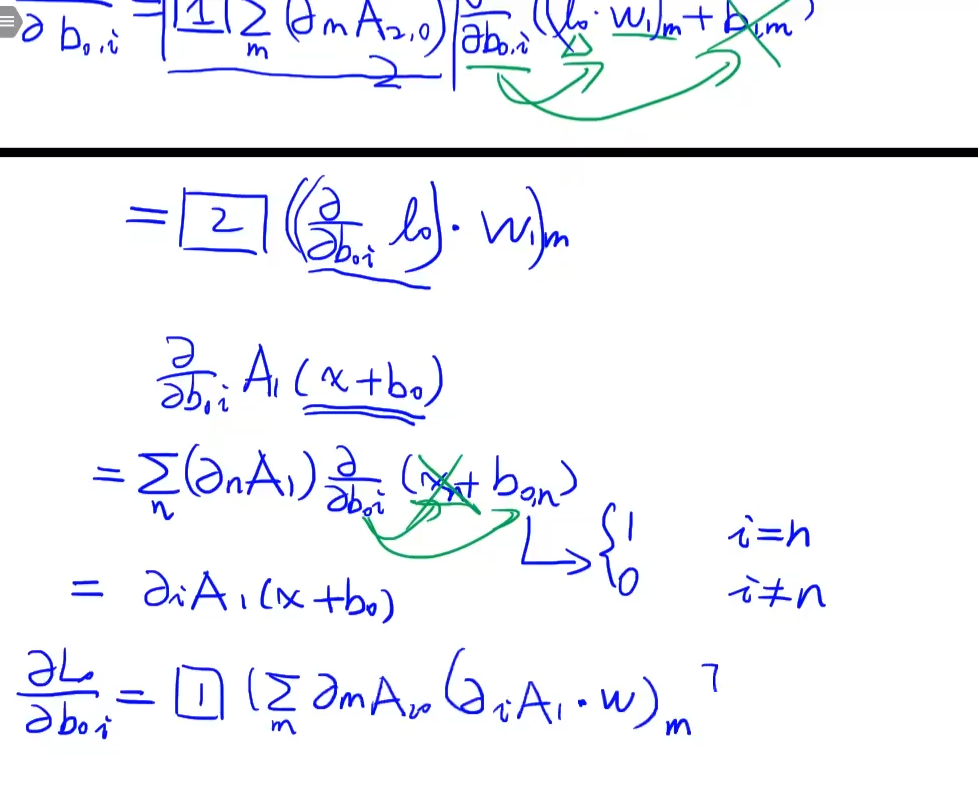 ∂b₀,ᵢ = [1] Σₘ (∂ₘA₂,₀) ∂/∂b₀,ᵢ ((l₀·W₁)ₘ + b₁,ₘ)
2
= [2] ((∂/∂b₀,ᵢ l₀)·W₁)ₘ
∂/∂b₀,ᵢ A₁(x+b₀)
= Σₙ(∂ₙA₁) ∂/∂b₀ᵢ (xₙ + b₀,ₙ)
↳ { 1 i=n
0 i≠n
= ∂ᵢA₁(x+b₀)
∂L₀/∂b₀ᵢ = [1] (Σₘ ∂ₘA₂₀ (∂ᵢA₁·W)ₘ